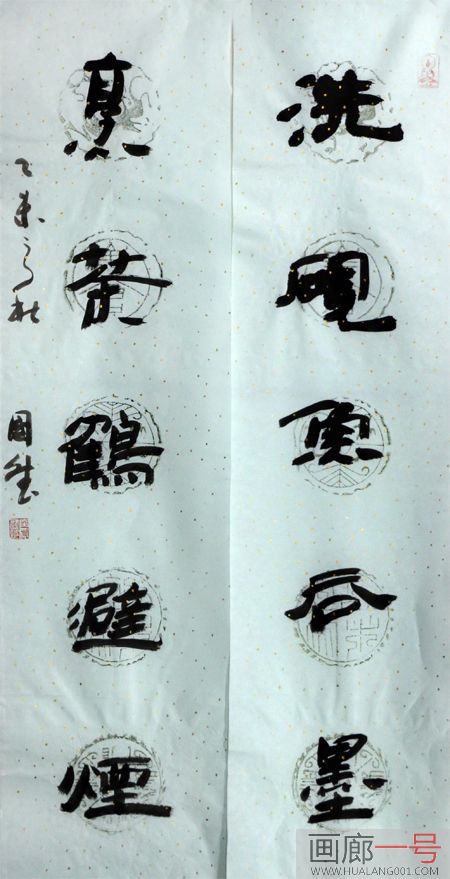 洗硯魚吞墨
烹茶鶴避煙
乙未之秋
画廊一号
WWW.HUALANG001.COM